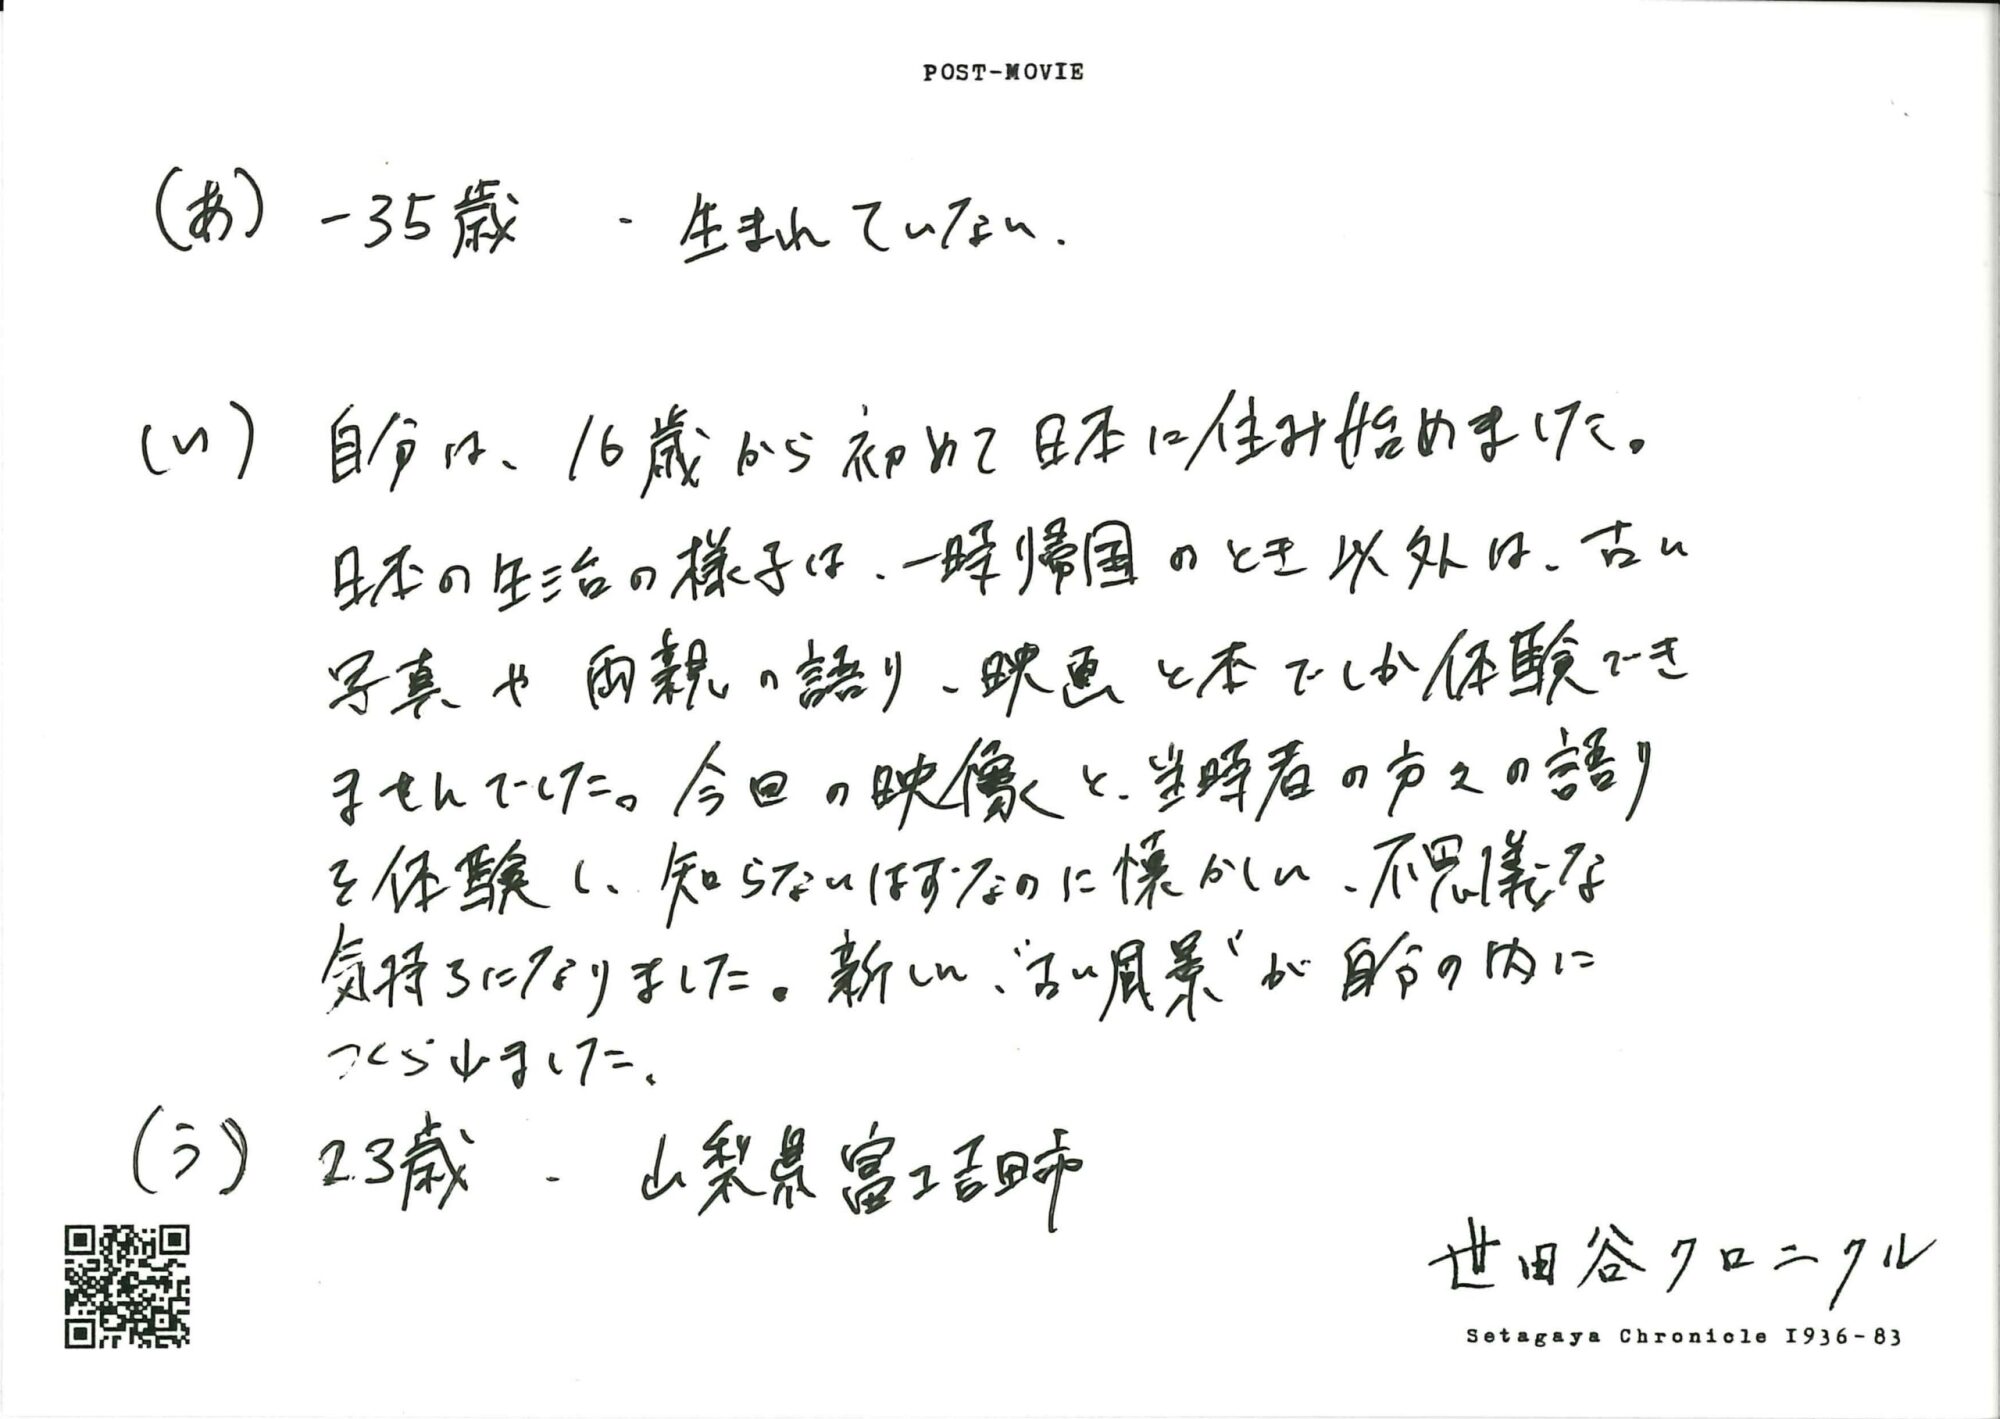 POST-MOVIE
(あ) -35歳 ・ 生まれていない.
(い) 自分は、16歳から初めて日本に住み始めました。
日本の生活の様子は、一時帰国のとき以外は、古い
写真や両親の語り、映画と本でしか体験でき
ませんでした。今回の映像と、当時者の方々の語り
を体験し、知らないはずなのに懐かしい、不思議な
気持ちになりました。新しい、“古い風景”が自分の内に
つくられました、
(う) 23歳 ・ 山梨県富士吉田市
世田谷クロニクル
Setagaya Chronicle 1936-83